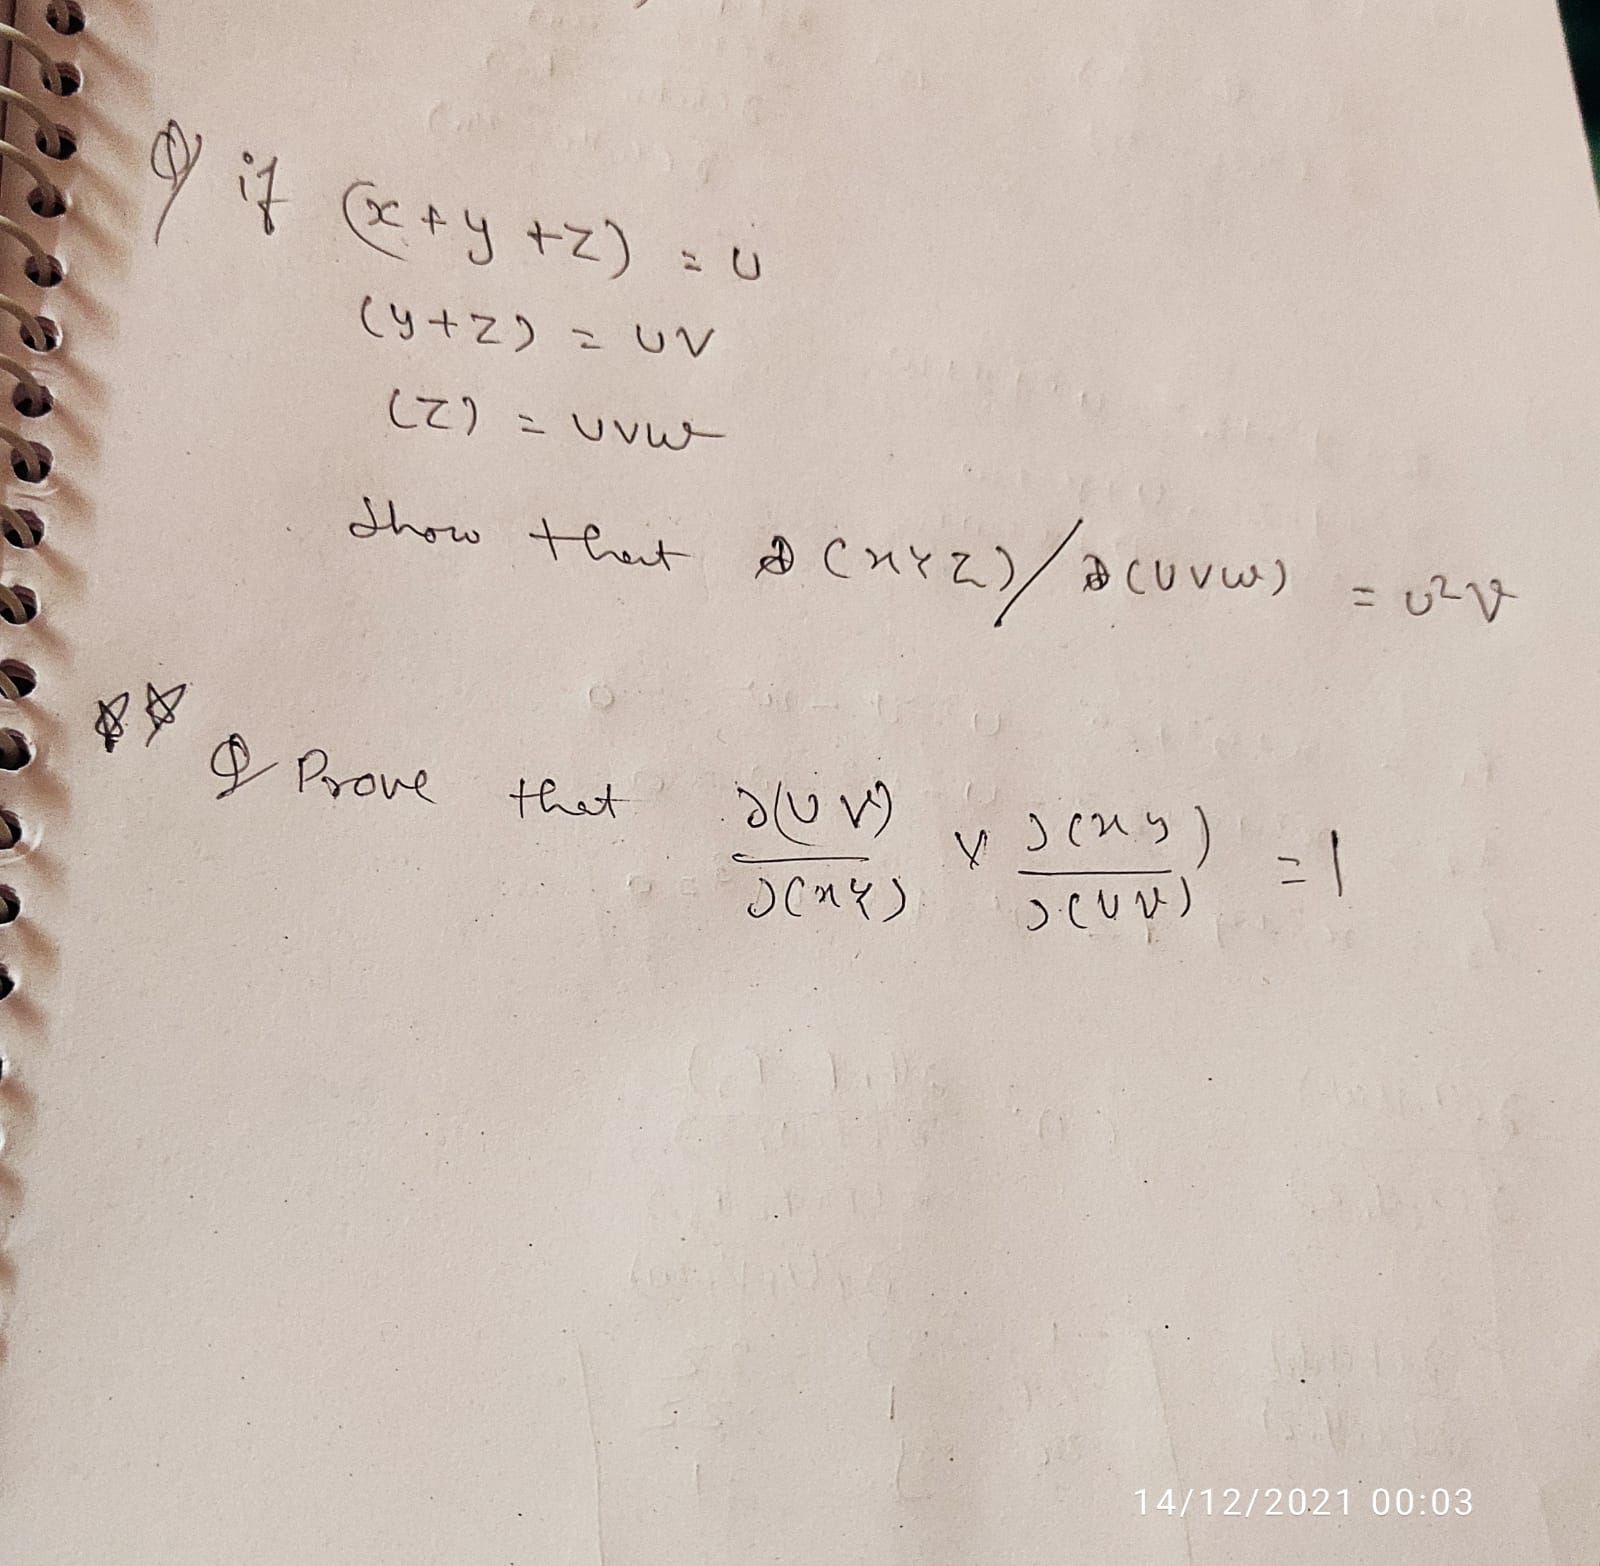 Q if (x+y+z) = u
(y+z) = uv
(z) = uvw
Show that ∂(xyz)/∂(uvw) = u²v
Q Prove that ∂(uv)/∂(xy) × ∂(xy)/∂(uv) = 1
14/12/2021 00:03